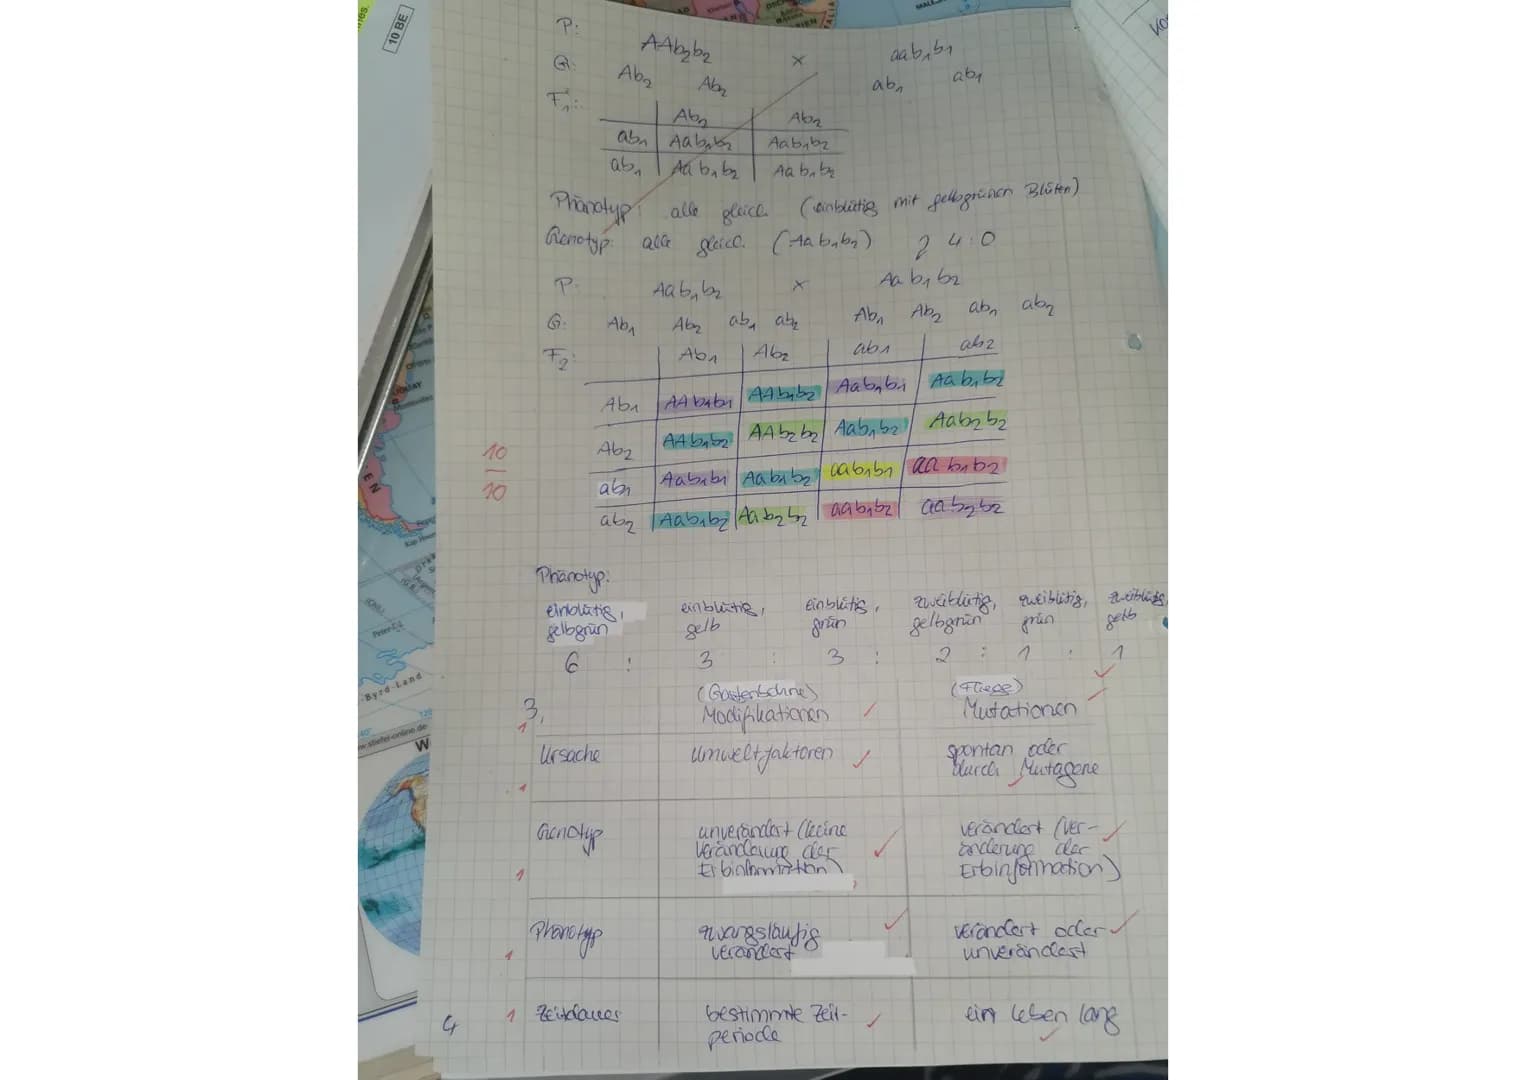 10 BE
P: AAb₂b₂ × aab₁b₁
G: Ab₂ Ab₂ ab₁ ab₁
F₁:
Ab₂ Ab₂
ab₁ Aab₁b₂ Aab₁b₂
ab₁ Aab₁b₂ Aab₁b₂
Phänotyp: alle gleich (einblütig mit gelbgrünen Blüten)
Genotyp: alle gleich (Aab₁b₂) 4:0
P: Aab₁b₂ × Aab₁b₂
G: Ab₁ Ab₂ ab₁ ab₂ Ab₁ Ab₂ ab₁ ab₂
F₂: Ab₁ Ab₂ ab₁ ab2
Ab₁ AAb₁b₁ AAb₁b₂ Aab₁b₁ Aab₁b₂
Ab₂ AAb₁b₂ AAb₂b₂ Aab₁b₂ Aab₂b₂
ab₁ Aab₁b₁ Aab₁b₂ aab₁b₁ aab₁b₂
ab₂ Aab₁b₂ Aab₂b₂ aab₁b₂ aab₂b₂
10
10
Phänotyp:
einblütig, einblütig, einblütig, zweiblütig, zweiblütig, zweiblütig,
gelbgrün gelb grün gelbgrün grün gelb
6 : 3 : 3 : 2 : 1 : 1
3, (Gartenbohne) (Fliege)
1 Modifikationen Mutationen
Ursache Umweltfaktoren spontan oder
1 durch Mutagene
Genotyp unverändert (keine verändert (Ver-
Veränderung der änderung der
1 Erbinformation) Erbinformation)
Phänotyp zwangsläufig verändert oder
1 verändert unverändert
4 1 Zeitdauer bestimmte Zeit- ein Leben lang
periode
Byrd-Land